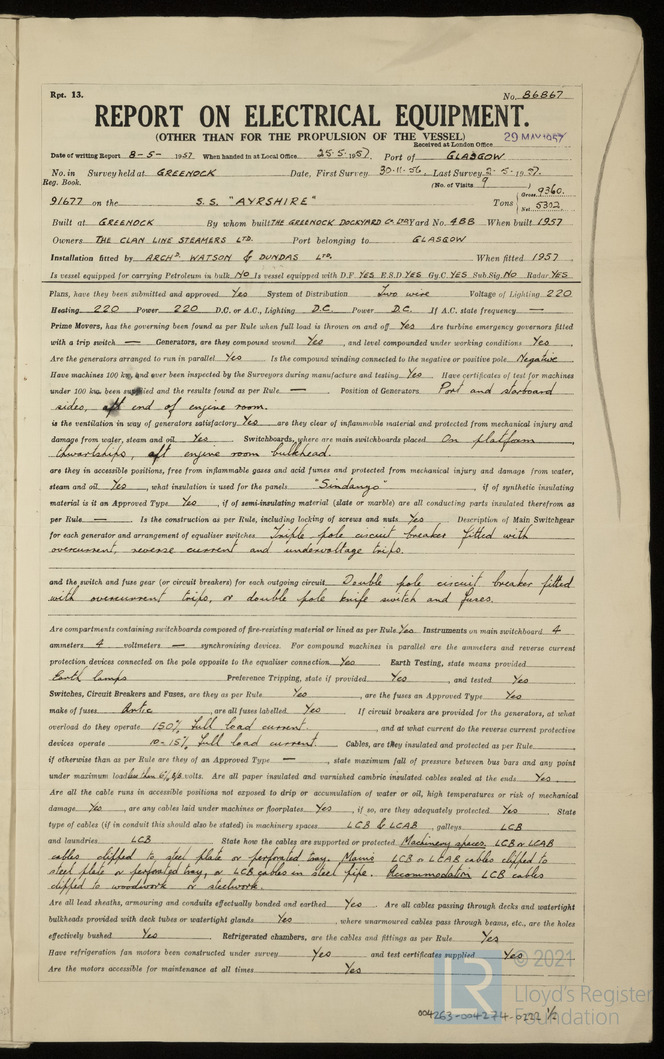 Rpt. 13.
No. 86867
REPORT ON ELECTRICAL EQUIPMENT.
(OTHER THAN FOR THE PROPULSION OF THE VESSEL)
Received at London Office 29 MAY 1957
Date of writing Report 8-5- 1957 When handed in at Local Office 25.5.1957 Port of GLASGOW
No. in Survey held at GREENOCK Date, First Survey 30.11.56. Last Survey 2.5.1957.
Reg. Book. (No. of Visits 9
91677 on the S.S. "AYRSHIRE" Tons { Gross 9360. Net 5302
Built at GREENOCK By whom built THE GREENOCK DOCKYARD Co. LTD Yard No. 488 When built 1957
Owners THE CLAN LINE STEAMERS LTD. Port belonging to GLASGOW
Installation fitted by ARCHD. WATSON & DUNDAS LTD. When fitted 1957
Is vessel equipped for carrying Petroleum in bulk NO Is vessel equipped with D.F. YES E.S.D YES Gy.C. YES Sub.Sig. NO Radar YES
Plans, have they been submitted and approved Yes System of Distribution Two wire Voltage of Lighting 220
Heating 220 Power 220 D.C. or A.C., Lighting D.C. Power D.C. If A.C. state frequency —
Prime Movers, has the governing been found as per Rule when full load is thrown on and off Yes Are turbine emergency governors fitted
with a trip switch — Generators, are they compound wound Yes, and level compounded under working conditions Yes,
Are the generators arranged to run in parallel Yes Is the compound winding connected to the negative or positive pole Negative
Have machines 100 kw. and over been inspected by the Surveyors during manufacture and testing Yes Have certificates of test for machines
under 100 kw. been supplied and the results found as per Rule — Position of Generators Port and starboard
sides, aft end of engine room.
is the ventilation in way of generators satisfactory Yes are they clear of inflammable material and protected from mechanical injury and
damage from water, steam and oil Yes. Switchboards, where are main switchboards placed On platform
thwartships, aft engine room bulkhead.
are they in accessible positions, free from inflammable gases and acid fumes and protected from mechanical injury and damage from water,
steam and oil Yes, what insulation is used for the panels "Sindanyo", if of synthetic insulating
material is it an Approved Type Yes, if of semi-insulating material (slate or marble) are all conducting parts insulated therefrom as
per Rule — Is the construction as per Rule, including locking of screws and nuts Yes Description of Main Switchgear
for each generator and arrangement of equaliser switches Triple pole circuit breaker fitted with
overcurrent, reverse current and undervoltage trips.
and the switch and fuse gear (or circuit breakers) for each outgoing circuit Double pole circuit breaker fitted
with overcurrent trips, or double pole knife switch and fuses.
Are compartments containing switchboards composed of fire-resisting material or lined as per Rule Yes Instruments on main switchboard 4
ammeters 4 voltmeters — synchronising devices. For compound machines in parallel are the ammeters and reverse current
protection devices connected on the pole opposite to the equaliser connection Yes Earth Testing, state means provided
Earth lamps Preference Tripping, state if provided Yes, and tested Yes
Switches, Circuit Breakers and Fuses, are they as per Rule Yes, are the fuses an Approved Type Yes
make of fuses Artic are all fuses labelled Yes If circuit breakers are provided for the generators, at what
overload do they operate 150% full load current, and at what current do the reverse current protective
devices operate 10-15% full load current. Cables, are they insulated and protected as per Rule
if otherwise than as per Rule are they of an Approved Type —, state maximum fall of pressure between bus bars and any point
under maximum load less than volts. Are all paper insulated and varnished cambric insulated cables sealed at the ends Yes.
Are all the cable runs in accessible positions not exposed to drip or accumulation of water or oil, high temperatures or risk of mechanical
damage Yes, are any cables laid under machines or floorplates Yes, if so, are they adequately protected Yes State
type of cables (if in conduit this should also be stated) in machinery spaces LCB & LCAB, galleys LCB
and laundries LCB State how the cables are supported or protected Machinery spaces, LCB or LCAB
cables clipped to steel plate or perforated tray. Mains LCB or LCAB cables clipped to
steel plate or perforated tray, or LCB cables in steel pipe. Accommodation LCB cables
clipped to woodwork or steelwork.
Are all lead sheaths, armouring and conduits effectually bonded and earthed Yes Are all cables passing through decks and watertight
bulkheads provided with deck tubes or watertight glands Yes, where unarmoured cables pass through beams, etc., are the holes
effectively bushed Yes Refrigerated chambers, are the cables and fittings as per Rule Yes
Have refrigeration fan motors been constructed under survey Yes and test certificates supplied Yes
Are the motors accessible for maintenance at all times Yes
© 2021
LR Lloyd's Register
Foundation
004263-004274-0222 1/2